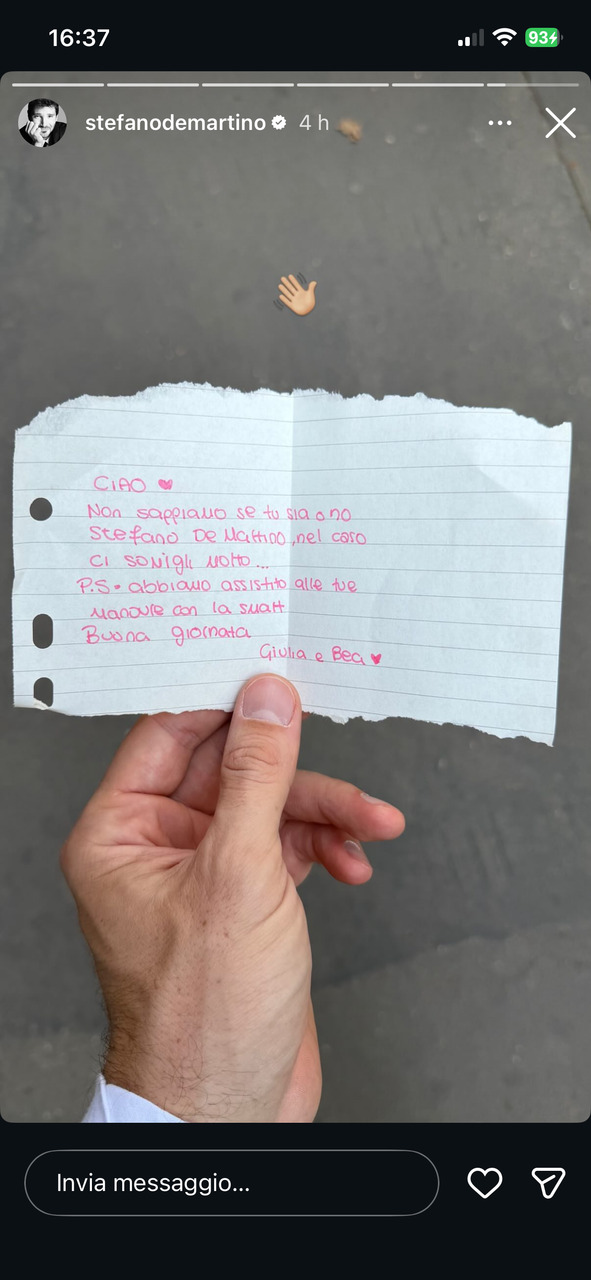 16:37
93
stefanodemartino 4 h
CIAO ♥
Non sappiamo se tu sia o no
Stefano De Martino, nel caso
ci somigli molto...
P.S. abbiamo assistito alle tue
manovre con la smart
Buona giornata
Giulia e Bea ♥
Invia messaggio...